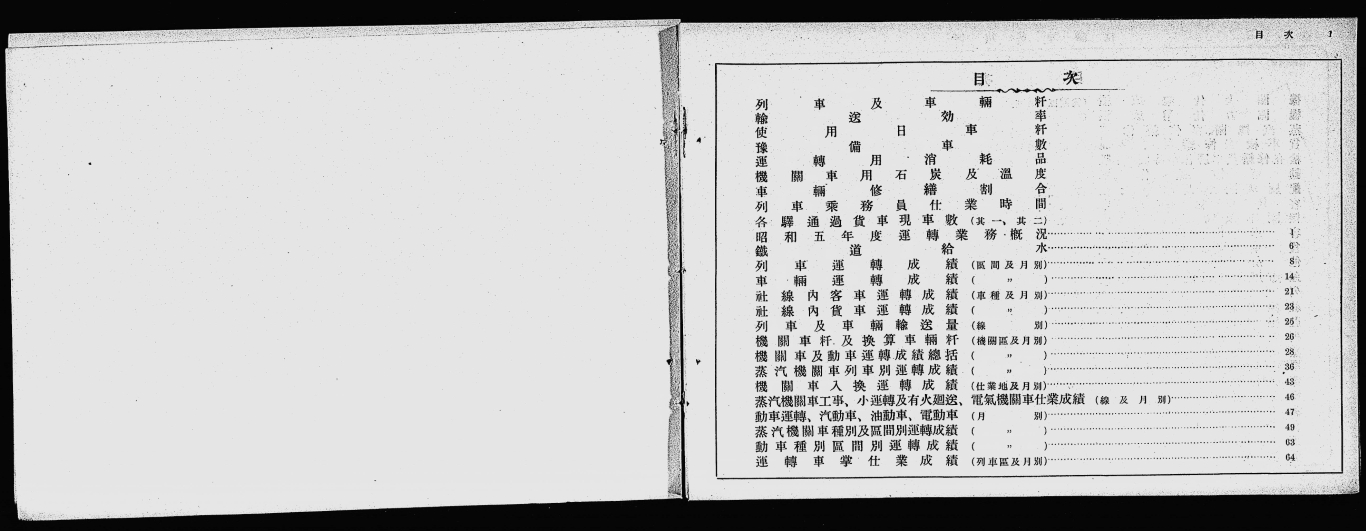 目次 1
目次
列車及車輛粁
輸送効率
使用日車粁
豫備車數
運轉用消耗品
機關車用石炭及溫度
車輛修繕割合
列車乘務員仕業時間
各驛通過貨車現車數(其一、其二)
昭和五年度運轉業務概況 1
鐵道給水 6
列車運轉成績(區間及月別) 8
車輛運轉成績( 〃 ) 14
社線內客車運轉成績(車種及月別) 21
社線內貨車運轉成績( 〃 ) 23
列車及車輛輸送量(線別) 25
機關車粁及換算車輛粁(機關區及月別) 26
機關車及動車運轉成績總括( 〃 ) 28
蒸汽機關車列車別運轉成績( 〃 ) 36
機關車入換運轉成績(仕業地及月別) 43
蒸汽機關車工事、小運轉及有火廻送、電氣機關車仕業成績(線及月別) 46
動車運轉、汽動車、油動車、電動車(月別) 47
蒸汽機關車種別及區間別運轉成績( 〃 ) 49
動車種別區間別運轉成績( 〃 ) 63
運轉車掌仕業成績(列車區及月別) 64